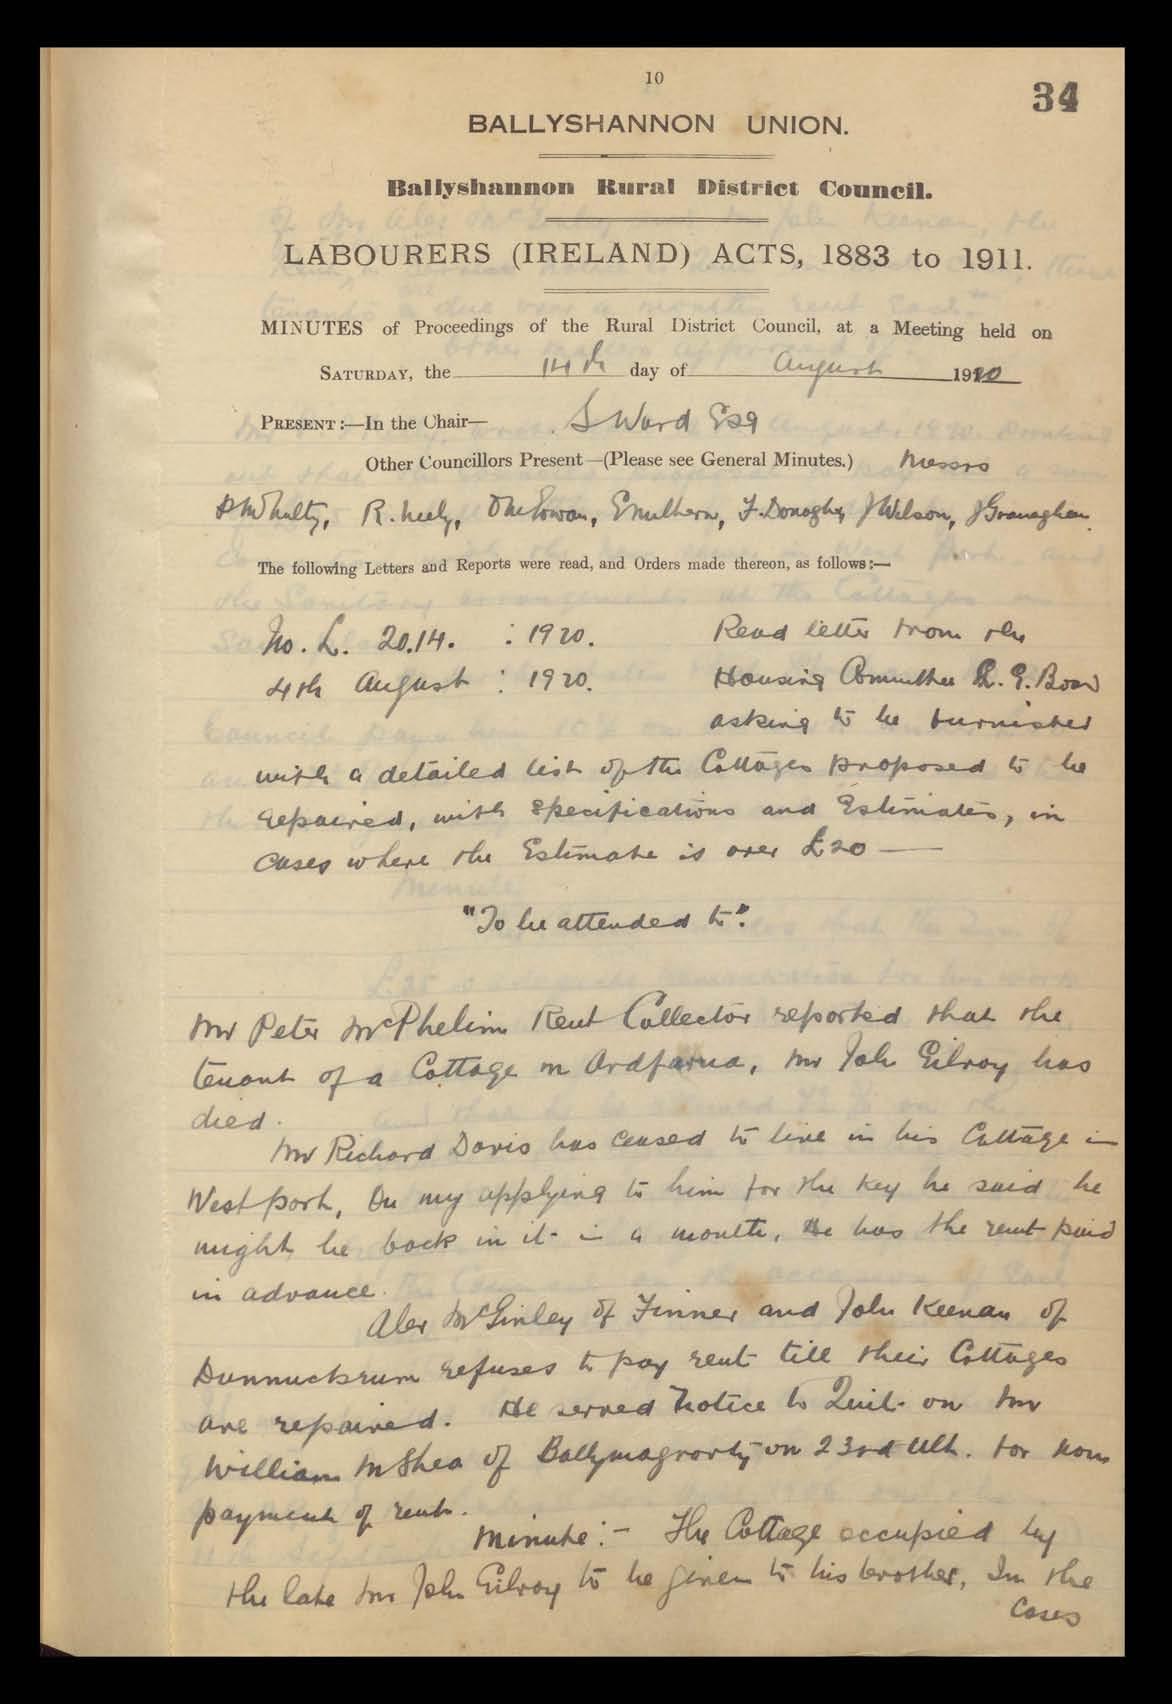 10
34
BALLYSHANNON UNION.
Ballyshannon Rural District Council.
LABOURERS (IRELAND) ACTS, 1883 to 1911.
MINUTES of Proceedings of the Rural District Council, at a Meeting held on
SATURDAY, the 14th day of August 1920
PRESENT:—In the Chair— S Ward Esq
Other Councillors Present—(Please see General Minutes.) Messrs
R. Neely, E Mulhern, F. Donaghy, J Wilson, J Granaghan.
The following Letters and Reports were read, and Orders made thereon, as follows:—
No. L. 20.14. : 1920. Read letter from the
4th August : 1920. Housing Committee L. G. Board
asking to be furnished
with a detailed list of the Cottages proposed to be
repaired, with specifications and Estimates, in
cases where the Estimate is over £20 —
"To be attended to".
Mr Peter McPhelim Rent Collector reported that the
tenant of a Cottage in Ardfarna, Mr Joh Gilroy has
died.
Mr Richard Davis has ceased to live in his Cottage in
West port, On my applying to him for the key he said he
might be back in it in a month, He has the rent paid
in advance.
Alex McGinley of Finner and John Keenan of
Dunmuckrum refuses to pay rent till their Cottages
are repaired. He served Notice to Quit on Mr
William McShea of Ballymagrorty on 23rd Ult. for non
payment of rent.
Minute:- The Cottage occupied by
the late Mr John Gilroy to be given to his brother, In the
Cases